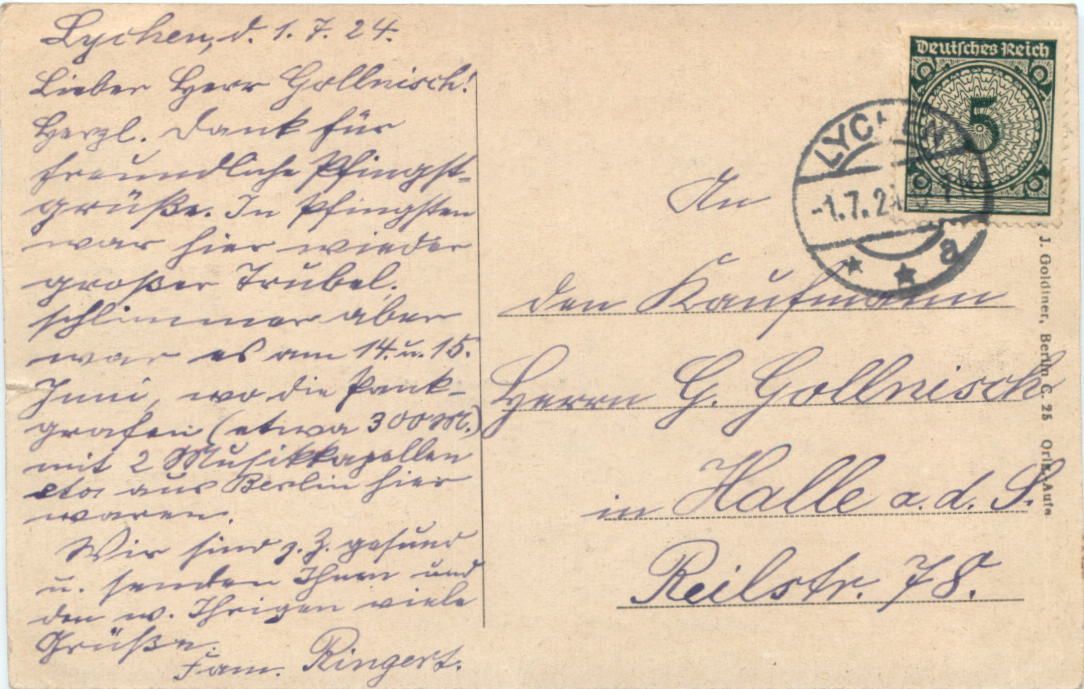 Lychen, d. 1. 7. 24.
Lieber Herr Gollnisch!
Herzl. Dank für
freundliche Pfingst-
grüße. In Pfingsten
war hier wieder
großer Trubel.
schlimmer aber
war es am 14. u. 15.
Juni, wo die Pank-
grafen (etwa 300 M.)
mit 2 Musikkapellen
aus Berlin hier
waren.
Wir sind z. Z. gesund
u. senden Ihnen und
den w. Ihrigen viele
Grüße.
Fam. Ringert.
Deutsches Reich
5
LYCHEN
-1.7.24
a
An
den Kaufmann
Herrn G. Gollnisch
in Halle a. d. S.
Reilstr. 78.
J. Goldiner, Berlin C. 25 Orig.-Aufn